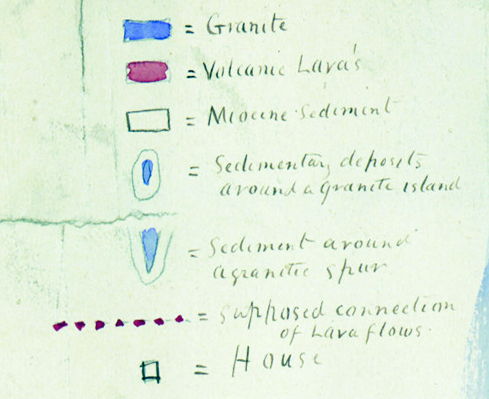 = Granite
= Volcanic Lava's
= Miocene Sediment
= Sedimentary deposits
around a granite island
= Sediment around
a granitic spur
= Supposed connection
of Lava flows.
= House